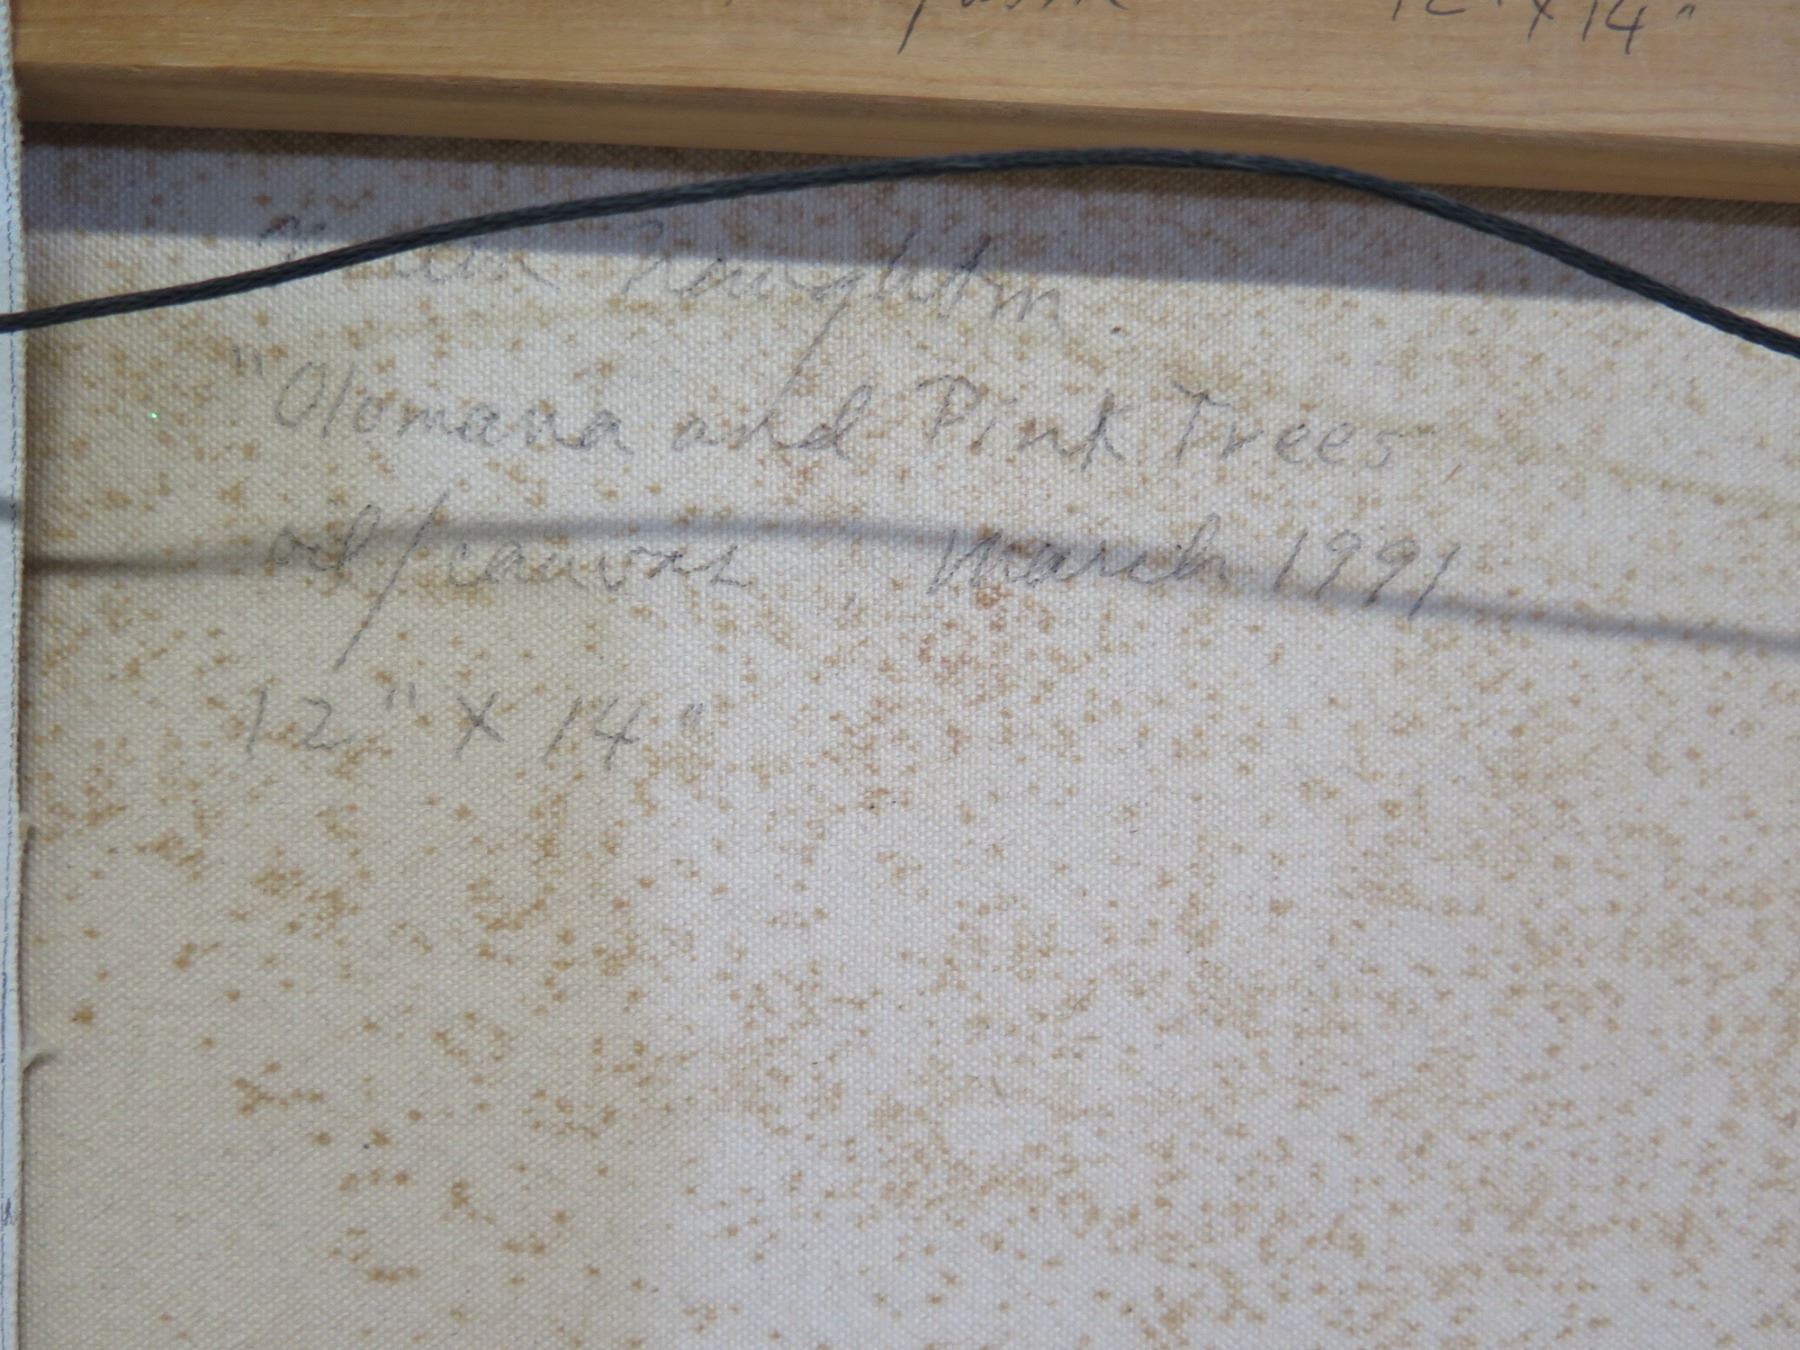 12" x 14"
Naughton
"Olomana and Pink Trees
oil/canvas March 1991
12" x 14"